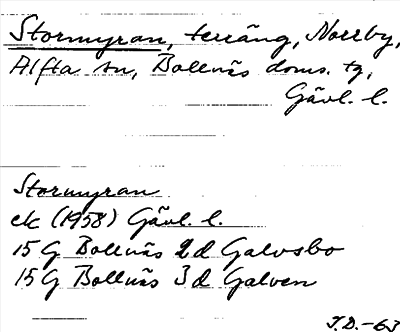 Stormyran, terräng, Norrby,
Alfta sn, Bollnäs doms. tg,
Gävl. l.
Stormyran
ek (1958) Gävl. l.
15 G Bollnäs 2d Galvsbo
15 G Bollnäs 3d Galven
J.D.-63